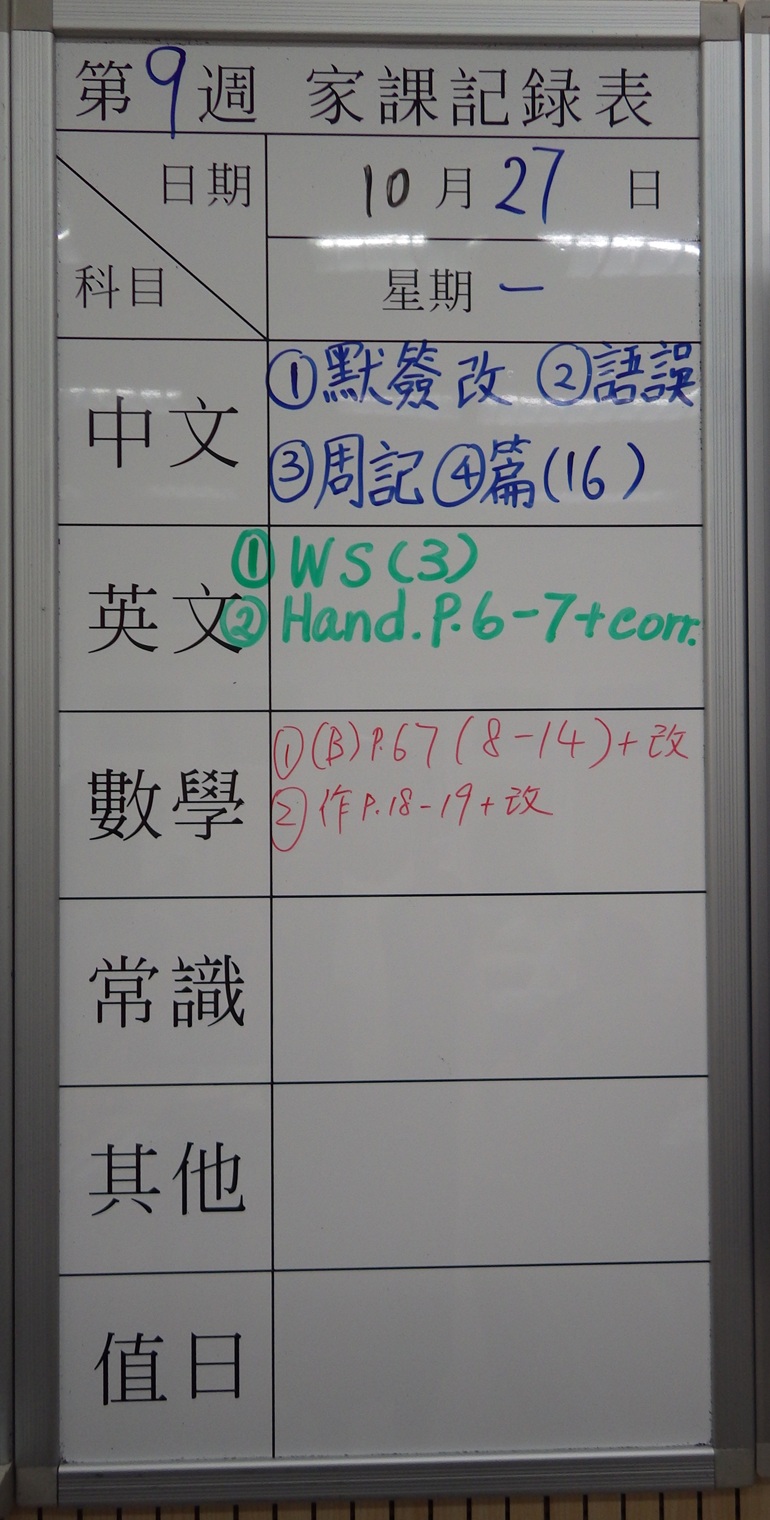 第9週 家課記録表
日期 10月27日
科目 星期一
中文 ①默簽改 ②語誤
③周記④篇(16)
英文 ①WS(3)
②Hand.P.6-7+corr.
數學 ①(B)P.67(8-14)+改
②作P.18-19+改
常識
其他
值日